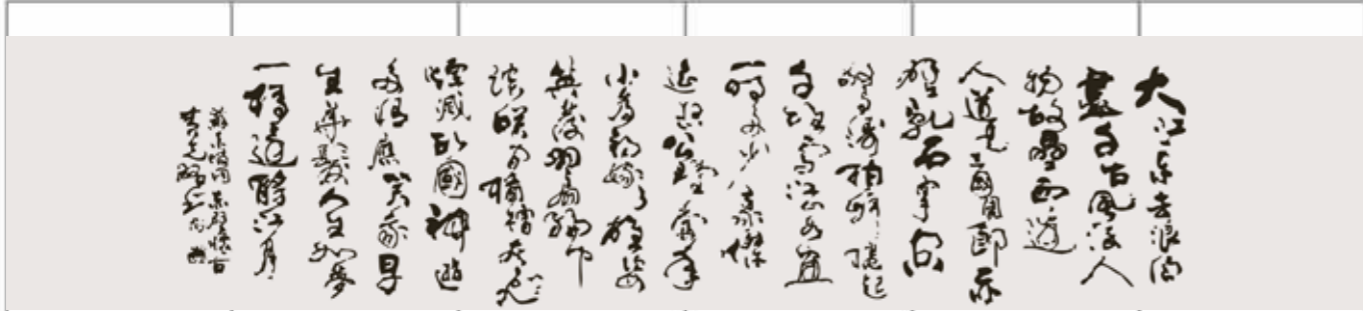 大江东去浪淘
盡千古風流人
物故壘西邊
人道是三國周郎赤
壁乱石穿空
驚濤拍岸捲起
千堆雪江山如畫
一時多少豪傑
遥想公瑾當年
小喬初嫁了雄姿
英發羽扇綸巾
談笑間檣櫓灰飛
煙滅故國神遊
多情應笑我早
生華髮人生如夢
一樽還酹江月
蘇東坡詞赤壁懷古